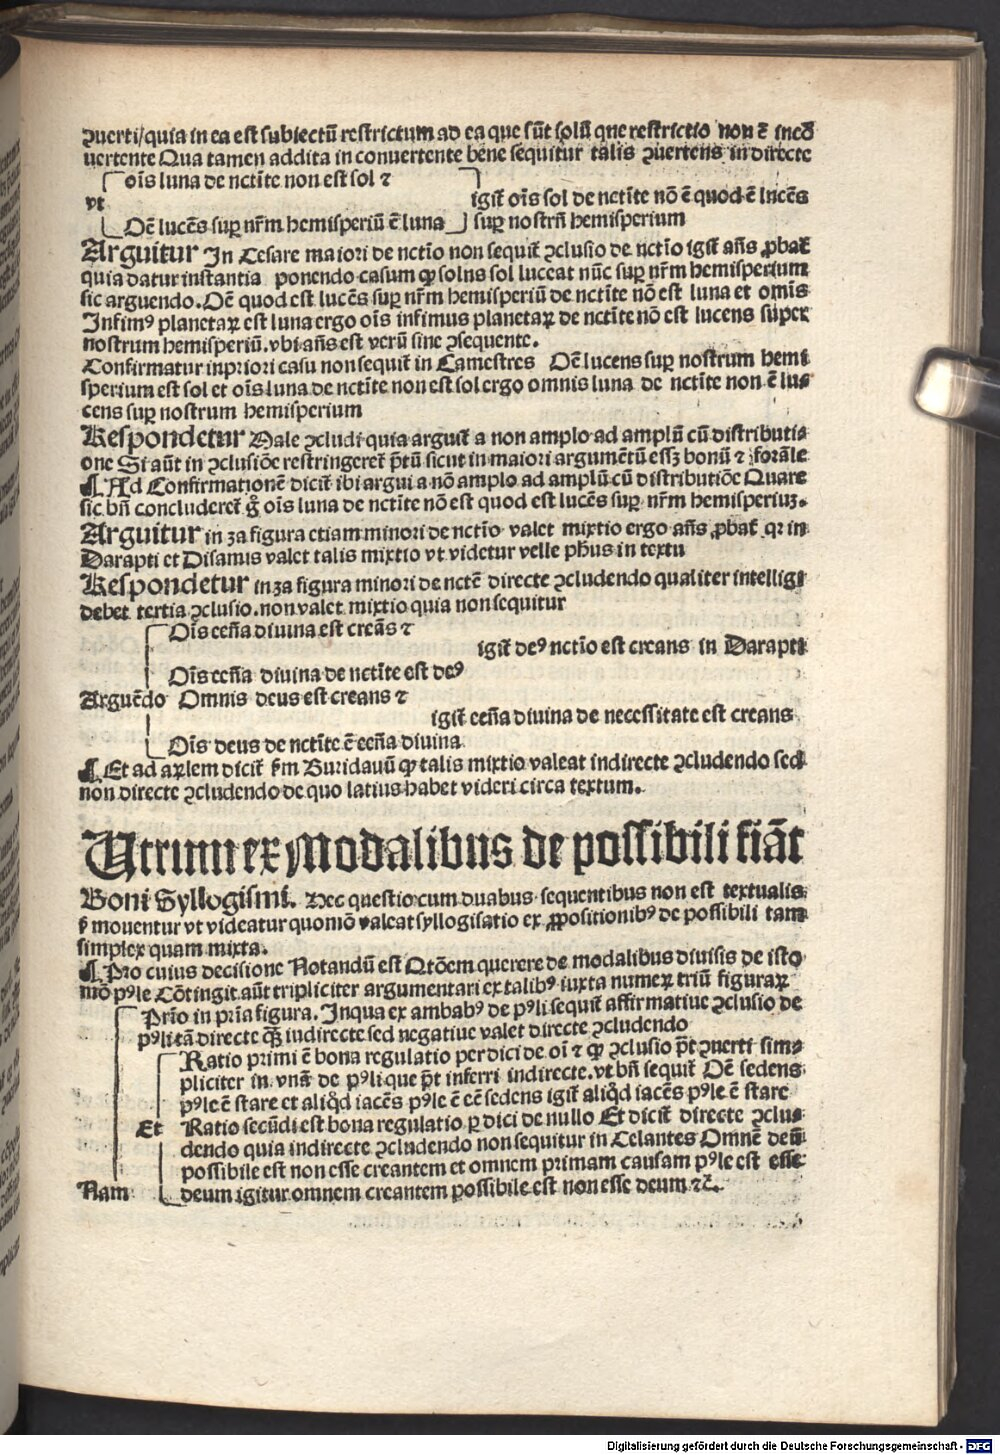 ꝯuerti/quia in ea est subiectū restrictum ad ea que sūt solū que restrictio non ē in cō
uertente Qua tamen addita in conuertente bene sequitur talis ꝯuertens indirecte
oīs luna de nctīte non est sol ⁊
igit̄ oīs sol de nctīte nō ē quod ē lucēs
vt
Oē lucēs suꝑ nr̄m hemisperiū ē luna
suꝑ nostrū hemisperium
Arguitur In Cesare maiori de nctīo non sequit̄ ꝯclusio de nctīo igit̄ añs ꝓbat̄
quia datur instantia ponendo casum ꝙ solus sol luceat nūc suꝑ nr̄m hemisperium
sic arguendo. Oē quod est lucēs suꝑ nr̄m hemisperiū de nctīte nō est luna et omīs
Infimꝰ planetaꝝ est luna ergo oīs infimus planetaꝝ de nctīte nō est lucens super
nostrum hemisperiū. vbi añs est verū sine ꝯsequente.
Confirmatur in priori casu non sequit̄ in Camestres Oē lucens suꝑ nostrum hemi
sperium est sol et oīs luna de nctīte non est sol ergo omnis luna de nctīte non ē lu⸗
cens suꝑ nostrum hemisperium
Respondetur Male ꝯcludi quia arguit̄ a non amplo ad amplū cū distributi⸗
one Si aūt in ꝯclusiōe restringeret̄ p̄tū sicut in maiori argumētū essꝫ bonū ⁊ forāle
¶ Ad Confirmationē dicit̄ ibi argui a nō amplo ad amplū cū distributiōe Quare
sic bn̄ concluderet̄ g̊ oīs luna de nctīte nō est quod est lucēs suꝑ nr̄m hemisperiuꝫ.
Arguitur in 3a figura etiam minori de nctīo valet mixtio ergo añs ꝓbat̄ qꝛ in
Darapti et Disamus valet talis mixtio vt videtur velle ph̄us in textu
Respondetur in 3a figura minori de nctē directe ꝯcludendo qualiter intelligi
debet tertia ꝯclusio. non valet mixtio quia non sequitur
Oīs eēna diuina est creās ⁊
igit̄ deꝰ nctīo est creans in Darapti
Oīs eēna diuina de nctīte est deꝰ
Arguēdo Omnis deus est creans ⁊
igit̄ eēna diuina de necessitate est creans
Oīs deus de nctīte ē eēna diuina
¶ Et ad aꝝlem dicit̄ ẜm Buridanū ꝙ talis mixtio valeat indirecte ꝯcludendo sed
non directe ꝯcludendo de quo latius habet videri circa textum.
Utrum ex Modalibus de possibili fiāt
Boni Syllogismi. Nec questio cum duabus sequentibus non est textualis
ẜ mouentur vt videatur quomō valeat syllogisatio ex ꝓpositionibꝰ de possibili tam
simplex quam mixta.
¶ Pro cuius decisione Notandū est Qtōem querere de modalibus diuisis de isto
mō pꝰle Cōtingit aūt tripliciter argumentari ex talibꝰ iuxta numeꝝ triū figuraꝝ
Prīo in prīa figura. In qua ex ambabꝰ de pꝰli sequit̄ affirmatiue ꝯclusio de
pꝰli tā directe qꝫ̄ indirecte sed negatiue valet directe ꝯcludendo
Ratio primi ē bona regulatio per dici de oī ⁊ ꝙ ꝯclusio p̄t ꝯuerti sim⸗
pliciter in vnā de pꝰli que p̄t inferri indirecte. vt bn̄ sequit̄ Oē sedens
pꝰle ē stare et aliqd̄ iacēs pꝰle ē eē sedens igit̄ aliqd̄ iacēs pꝰle ē stare
Et Ratio secūdi est bona regulatio ꝑ dici de nullo Et dicit̄ directe ꝯclu⸗
dendo quia indirecte ꝯcludendo non sequitur in Celantes Omnē deū
possibile est non esse creantem et omnem primam causam pꝰle est esse
Nam deum igitur omnem creantem possibile est non esse deum ⁊c̄.
Digitalisierung gefördert durch die Deutsche Forschungsgemeinschaft - DFG